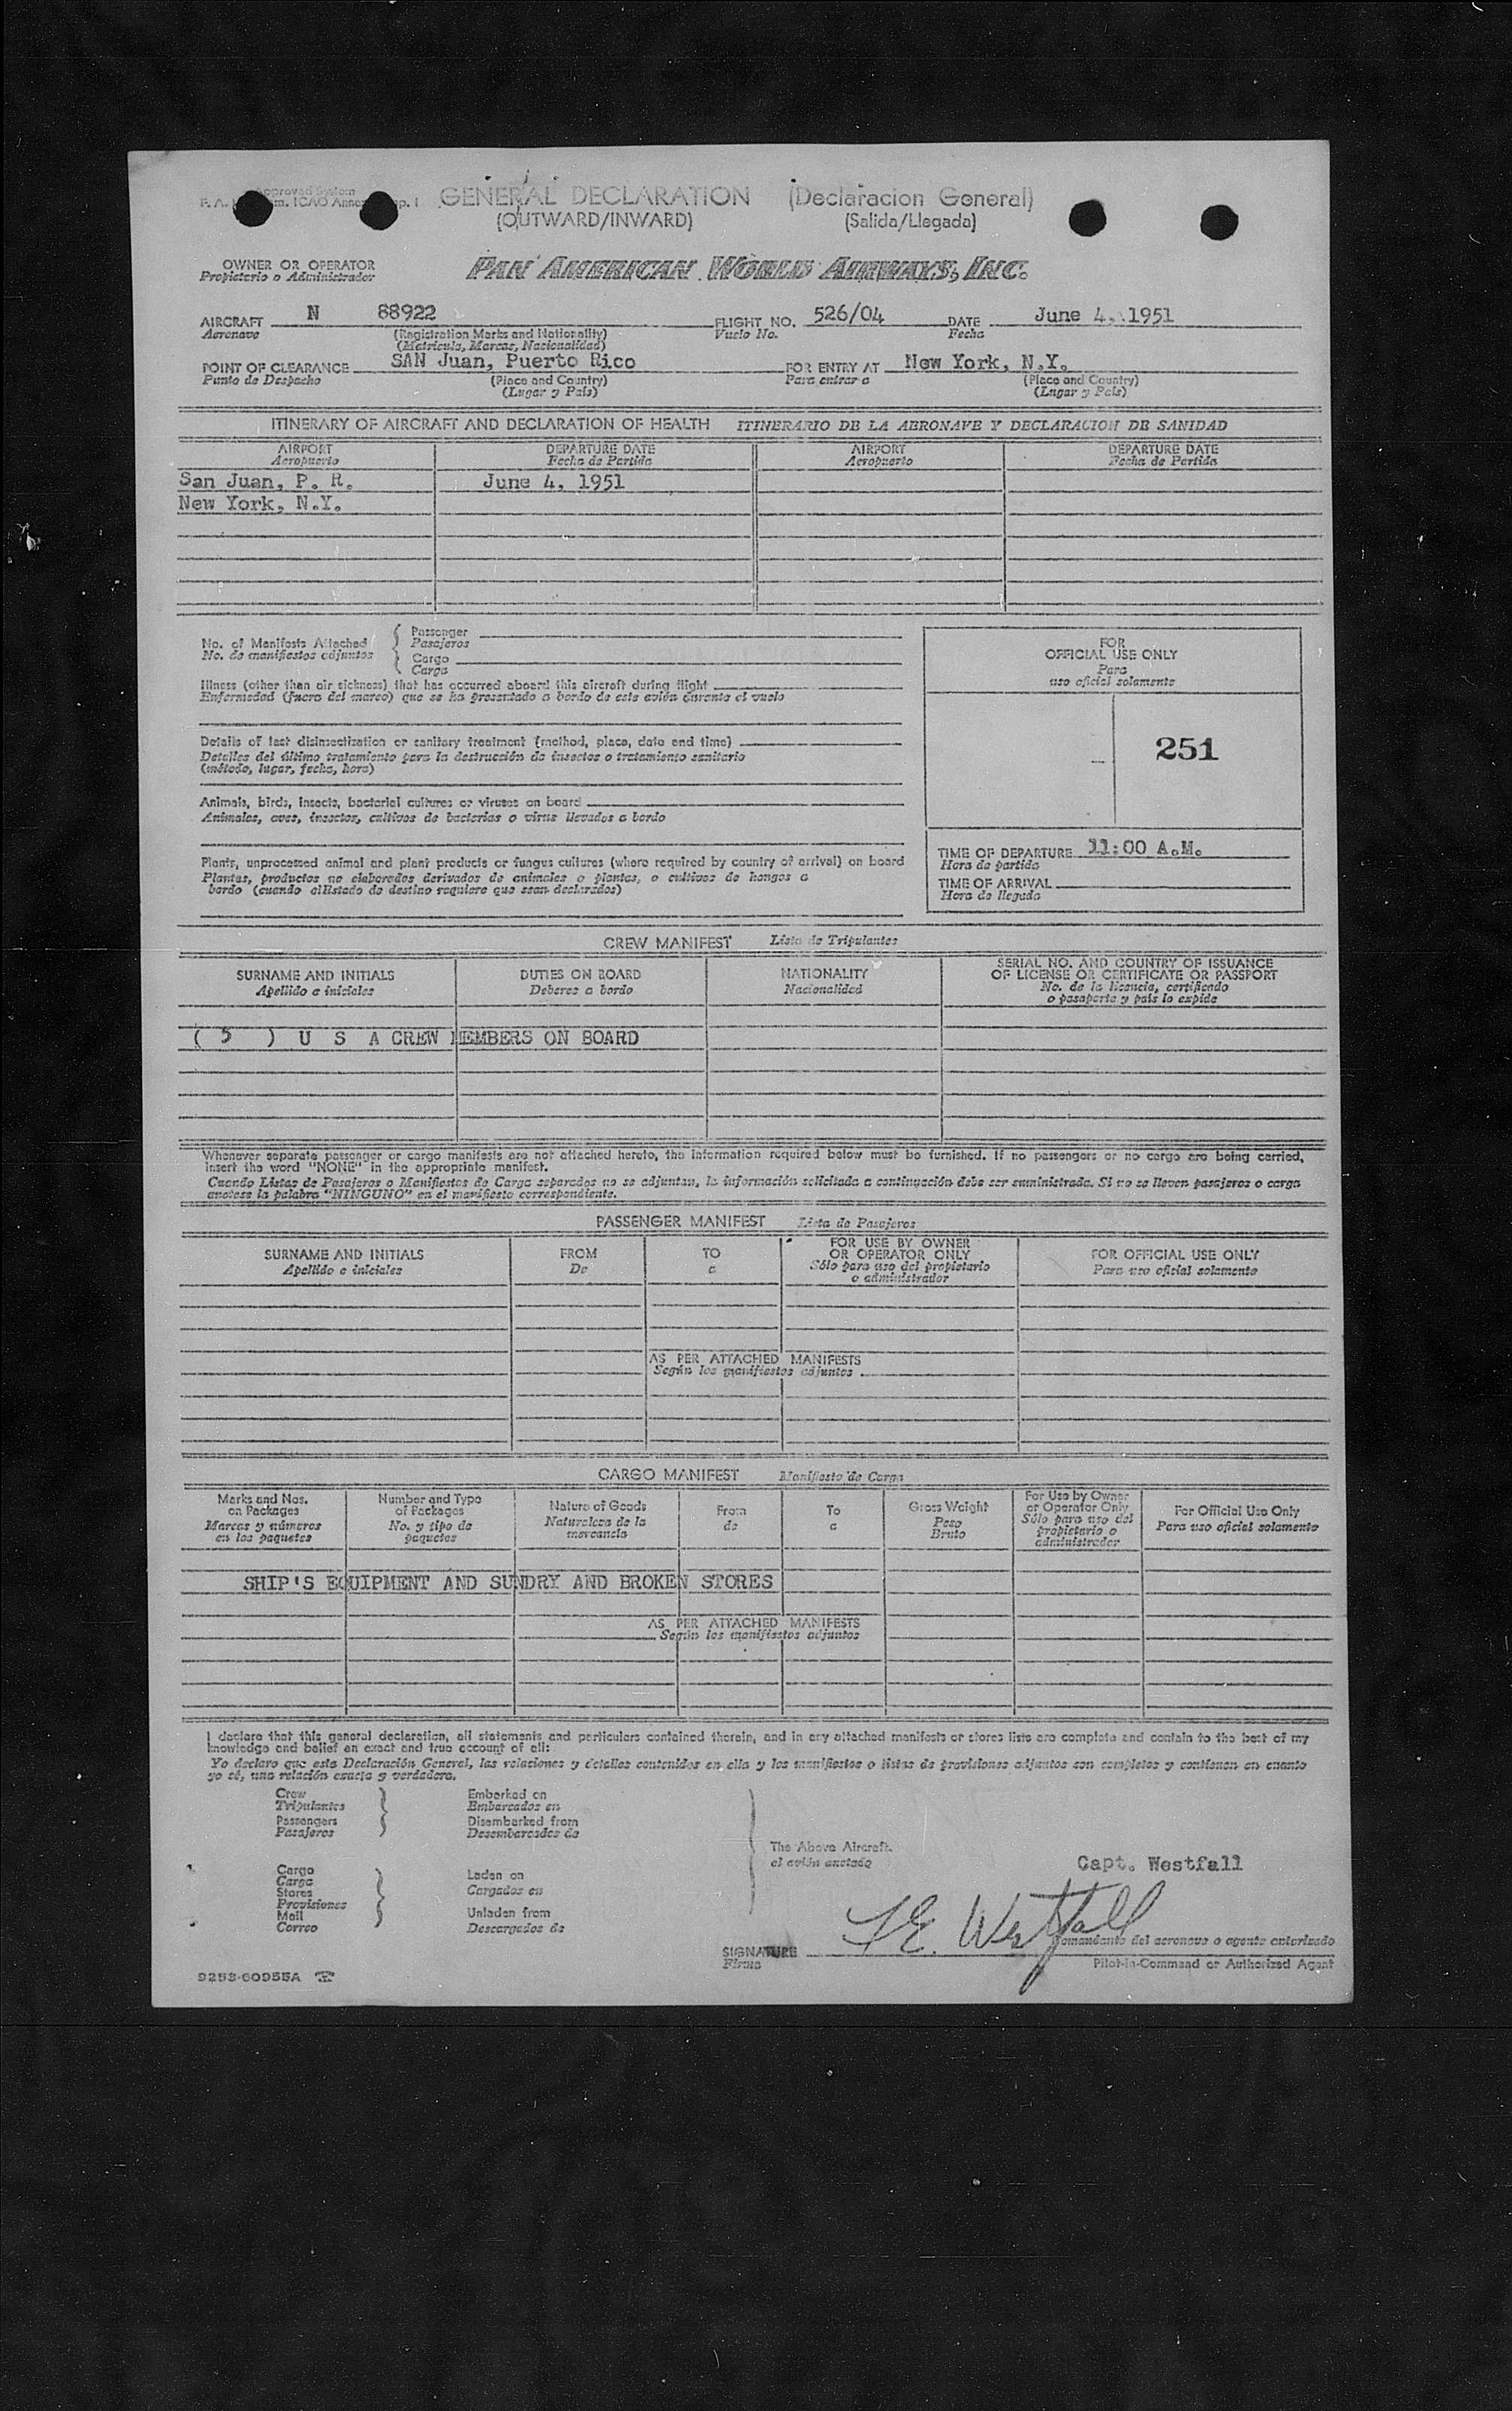 Approved System
F. A. ICAO Annex p. 1
GENERAL DECLARATION (Declaracion General)
(OUTWARD/INWARD) (Salida/Llegada)
OWNER OR OPERATOR
Propietario o Administrador
PAN AMERICAN WORLD AIRWAYS, INC.
AIRCRAFT N 88922 FLIGHT NO. 526/04 DATE June 4, 1951
Aeronave (Registration Marks and Nationality) Vuelo No. Fecha
(Matricula, Marcas, Nacionalidad)
POINT OF CLEARANCE SAN Juan, Puerto Rico FOR ENTRY AT New York, N.Y.
Punto de Despacho (Place and Country) Para entrar a (Place and Country)
(Lugar y País) (Lugar y País)
ITINERARY OF AIRCRAFT AND DECLARATION OF HEALTH ITINERARIO DE LA AERONAVE Y DECLARACION DE SANIDAD
AIRPORT DEPARTURE DATE AIRPORT DEPARTURE DATE
Aeropuerto Fecha de Partida Aeropuerto Fecha de Partida
San Juan, P. R. June 4, 1951
New York, N.Y.
No. of Manifests Attached
No. de manifiestos adjuntos
Passenger
Pasajeros
Cargo
Carga
Illness (other than air sickness) that has occurred aboard this aircraft during flight
Enfermedad (fuera del mareo) que se ha presentado a bordo de este avión durante el vuelo
Details of last disinsectization or sanitary treatment (method, place, date and time)
Detalles del último tratamiento para la destrucción de insectos o tratamiento sanitario
(método, lugar, fecha, hora)
Animals, birds, insects, bacterial cultures or viruses on board
Animales, aves, insectos, cultivos de bacterias o virus llevados a bordo
Plants, unprocessed animal and plant products or fungus cultures (where required by country of arrival) on board
Plantas, productos no elaborados derivados de animales o plantas, o cultivos de hongos a
bordo (cuando elEstado de destino requiere que sean declarados)
FOR
OFFICIAL USE ONLY
Para
uso oficial solamente
251
TIME OF DEPARTURE 11:00 A.M.
Hora de partida
TIME OF ARRIVAL
Hora de llegada
CREW MANIFEST Lista de Tripulantes
SURNAME AND INITIALS DUTIES ON BOARD NATIONALITY SERIAL NO. AND COUNTRY OF ISSUANCE
OF LICENSE OR CERTIFICATE OR PASSPORT
Apellido e iniciales Deberes a bordo Nacionalidad No. de la licencia, certificado
o pasaporte y país lo expide
( 5 ) U S A CREW MEMBERS ON BOARD
Whenever separate passenger or cargo manifests are not attached hereto, the information required below must be furnished. If no passengers or no cargo are being carried,
insert the word "NONE" in the appropriate manifest.
Cuando Listas de Pasajeros o Manifiestos de Carga separados no se adjuntan, la información solicitada a continuación debe ser suministrada. Si no se lleven pasajeros o carga
anotese la palabra "NINGUNO" en el manifiesto correspondiente.
PASSENGER MANIFEST Lista de Pasajeros
SURNAME AND INITIALS FROM TO FOR USE BY OWNER
OR OPERATOR ONLY FOR OFFICIAL USE ONLY
Apellido e iniciales De a Sólo para uso del propietario
o administrador Para uso oficial solamente
AS PER ATTACHED MANIFESTS
Según los manifiestos adjuntos
CARGO MANIFEST Manifiesto de Carga
Marks and Nos.
on Packages
Marcas y números
en los paquetes
Number and Type
of Packages
No. y tipo de
paquetes
Nature of Goods
Naturaleza de la
mercancía
From
de
To
a
Gross Weight
Peso
Bruto
For Use by Owner
or Operator Only
Sólo para uso del
propietario o
administrador
For Official Use Only
Para uso oficial solamente
SHIP'S EQUIPMENT AND SUNDRY AND BROKEN STORES
AS PER ATTACHED MANIFESTS
Según los manifiestos adjuntos
I declare that this general declaration, all statements and particulars contained therein, and in any attached manifests or stores lists are complete and contain to the best of my
knowledge and belief an exact and true account of all:
Yo declaro que esta Declaración General, las relaciones y detalles contenidos en ella y los manifiestos o listas de provisiones adjuntos son completos y contienen en cuanto
yo sé, una relación exacta y verdadera.
Crew
Tripulantes
Passengers
Pasajeros
Embarked on
Embarcados en
Disembarked from
Desembarcados de
Cargo
Carga
Stores
Provisiones
Mail
Correo
Laden on
Cargados en
Unladen from
Descargados de
The Above Aircraft.
el avión anotado
Capt. Westfall
F E. Westfall
SIGNATURE
Firma
Comandante del aeronave o agente autorizado
Pilot-in-Command or Authorized Agent
9253-60955A